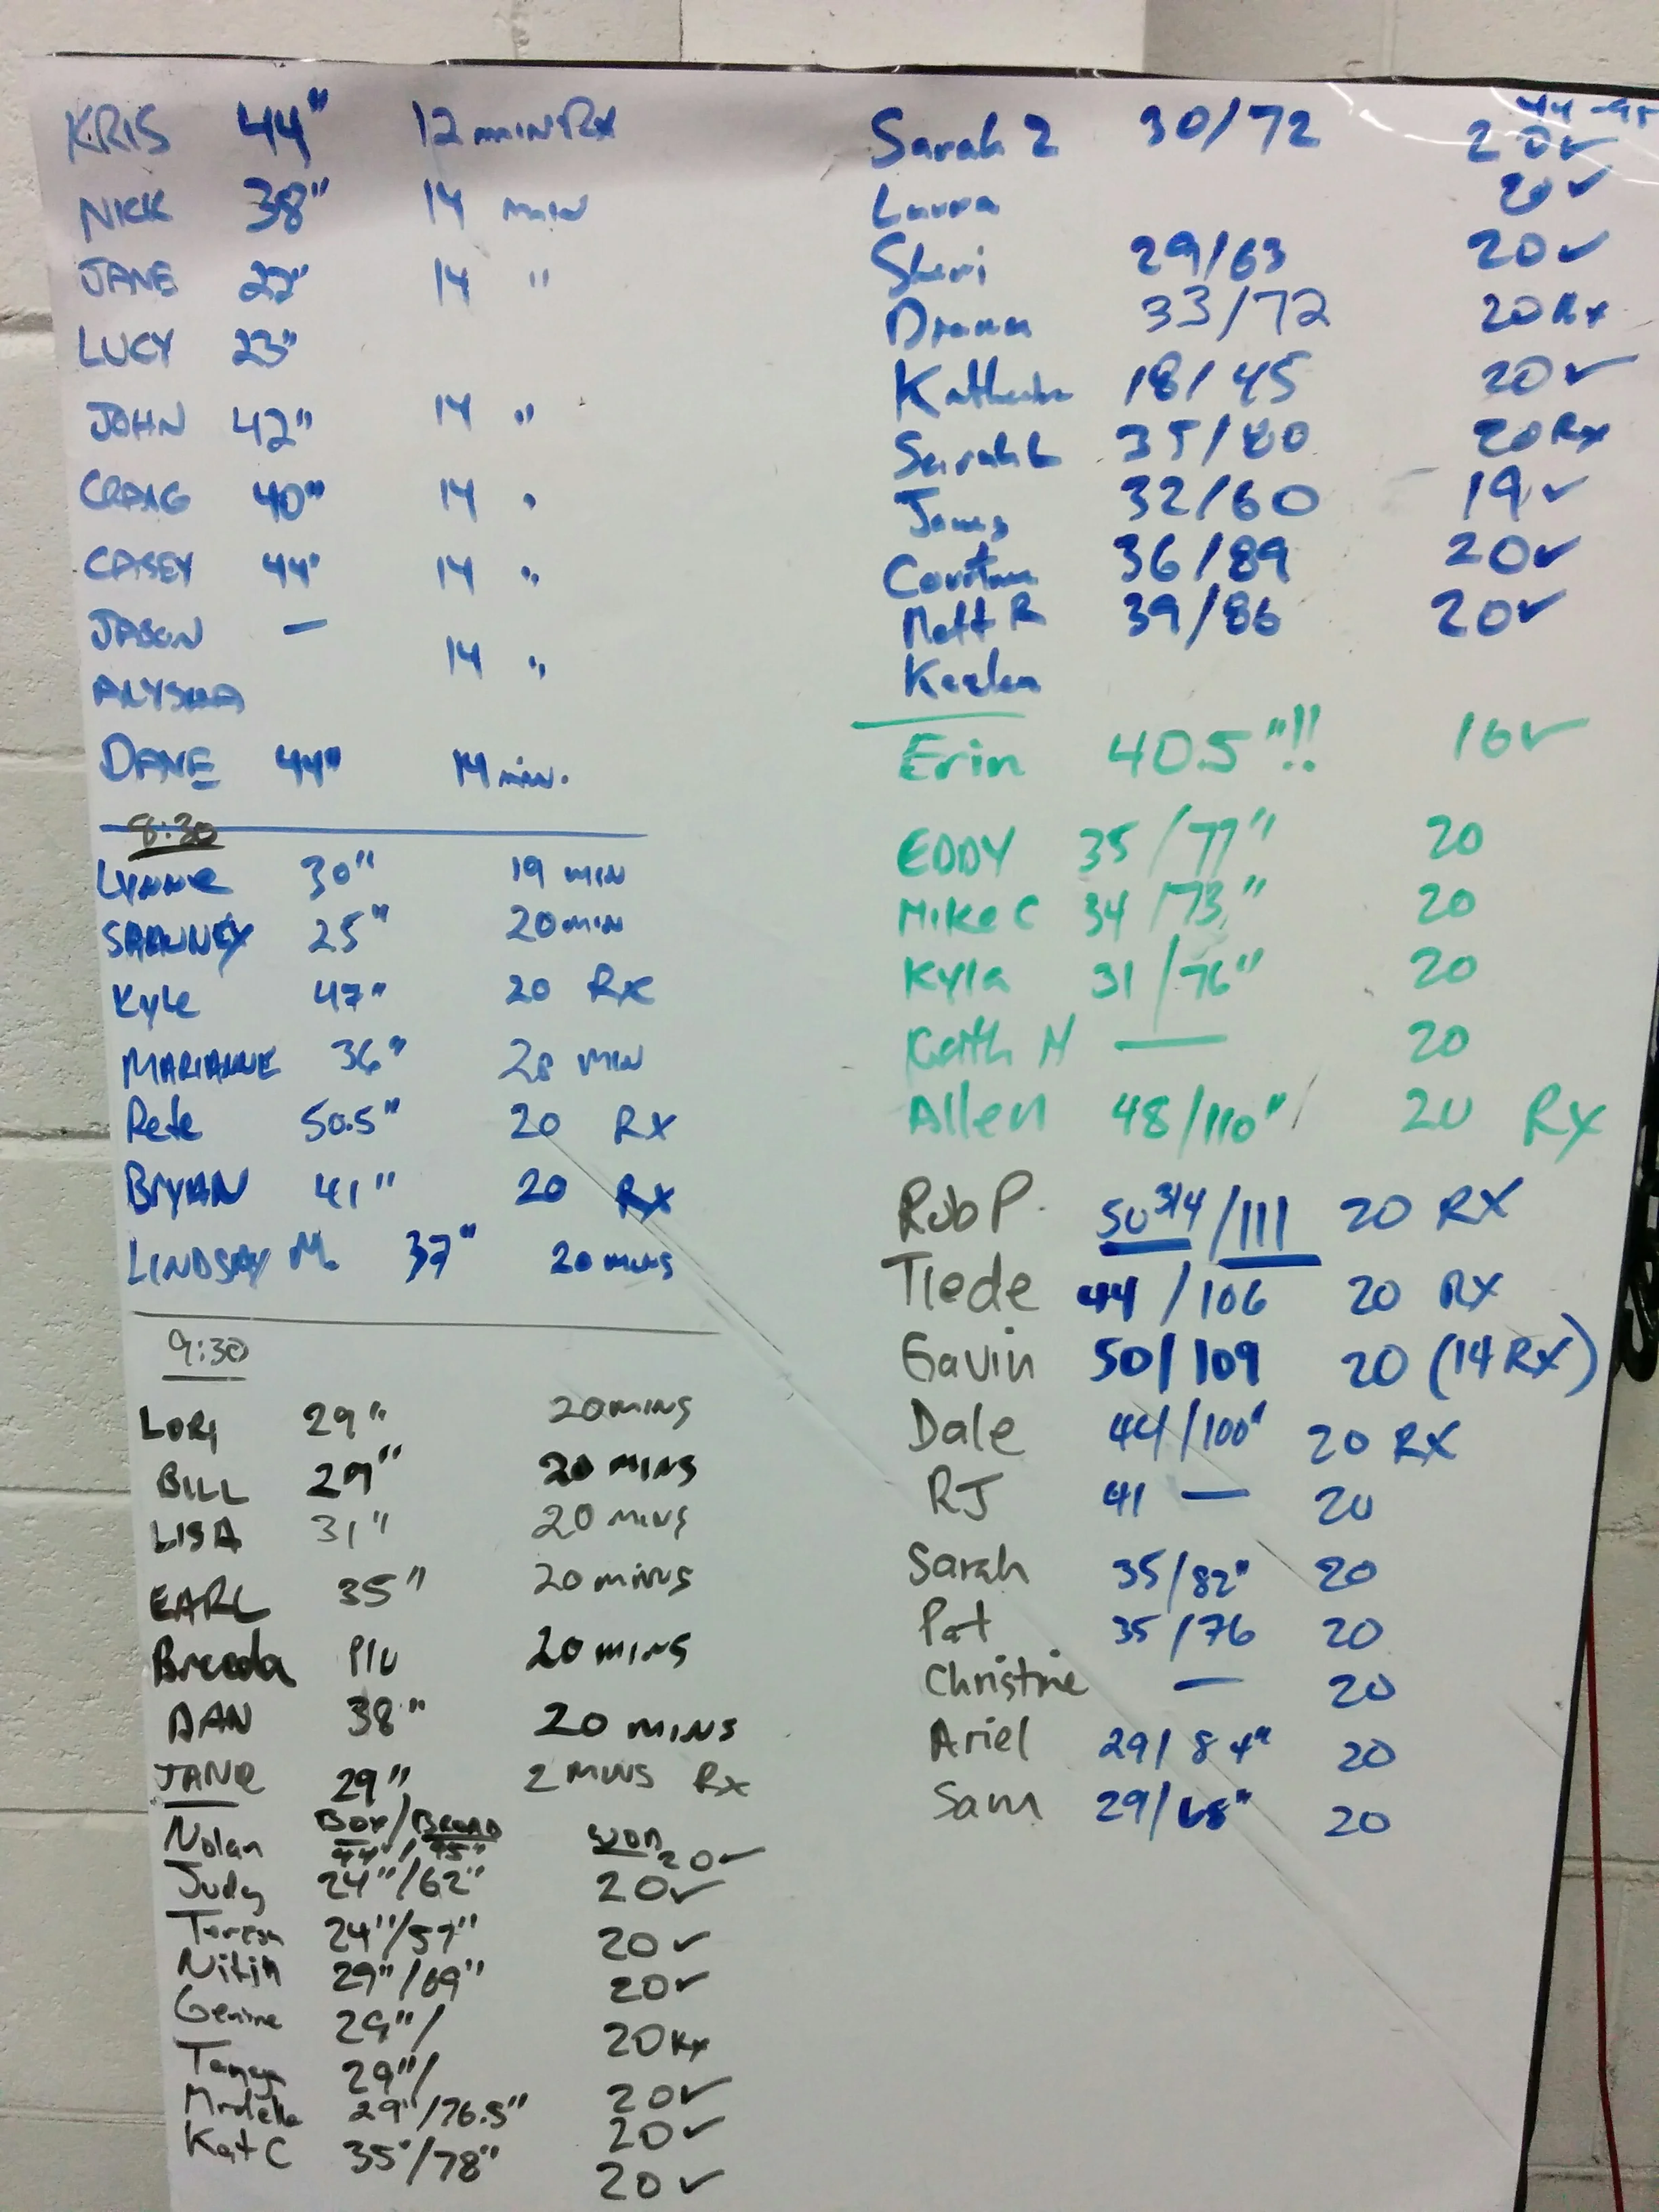 KRIS 44" 12 min Rx
NICK 38" 14 min
JANE 14 "
LUCY 23"
JOHN 42" 14 "
CRAIG 40" 14 "
CASEY 44" 14 "
JASON — 14 "
ALYSHA
DANE 44" 14 min.
8:30
Lynne 30" 19 MIN
25" 20 MIN
Kyle 47" 20 Rx
MARIANNE 36" 20 MIN
Pete 50.5" 20 RX
BRYAN 41" 20 RX
LINDSAY M. 37" 20 MINS
9:30
LORI 29" 20 MINS
BILL 29" 20 MINS
LISA 31" 20 MINS
EARL 35" 20 MINS
20 MINS
DAN 38" 20 MINS
JANE 29" 2 MINS Rx
BOX/BROAD WOD
Nolan 44"/95" 20✓
Judy 24"/62" 20✓
Teresa 24"/57" 20✓
Nitin 29"/69" 20✓
Genine 29"/ 20 Rx
Tanya 29"/ 20✓
29"/76.5" 20✓
Kat C 35"/78" 20✓
Sarah Z 30/72 20✓
Laura 20✓
Sheri 29/63 20✓
33/72 20 Rx
18/45 20✓
Sarah L 35/80 20 Rx
James 32/60 19✓
36/89 20✓
Matt R 39/86 20✓
Erin 40.5"!! 16✓
EDDY 35/77" 20
Mike C 34/73" 20
Kyla 31/76" 20
Keith M — 20
Allen 48/110" 20 Rx
Rob P. 50 3/4/111 20 RX
Tiede 44/106 20 RX
Gavin 50/109 20 (14 RX)
Dale 44/100" 20 RX
RJ 41 — 20
Sarah 35/82" 20
Pat 35/76 20
Christine — 20
Ariel 29/84" 20
Sam 29/68" 20